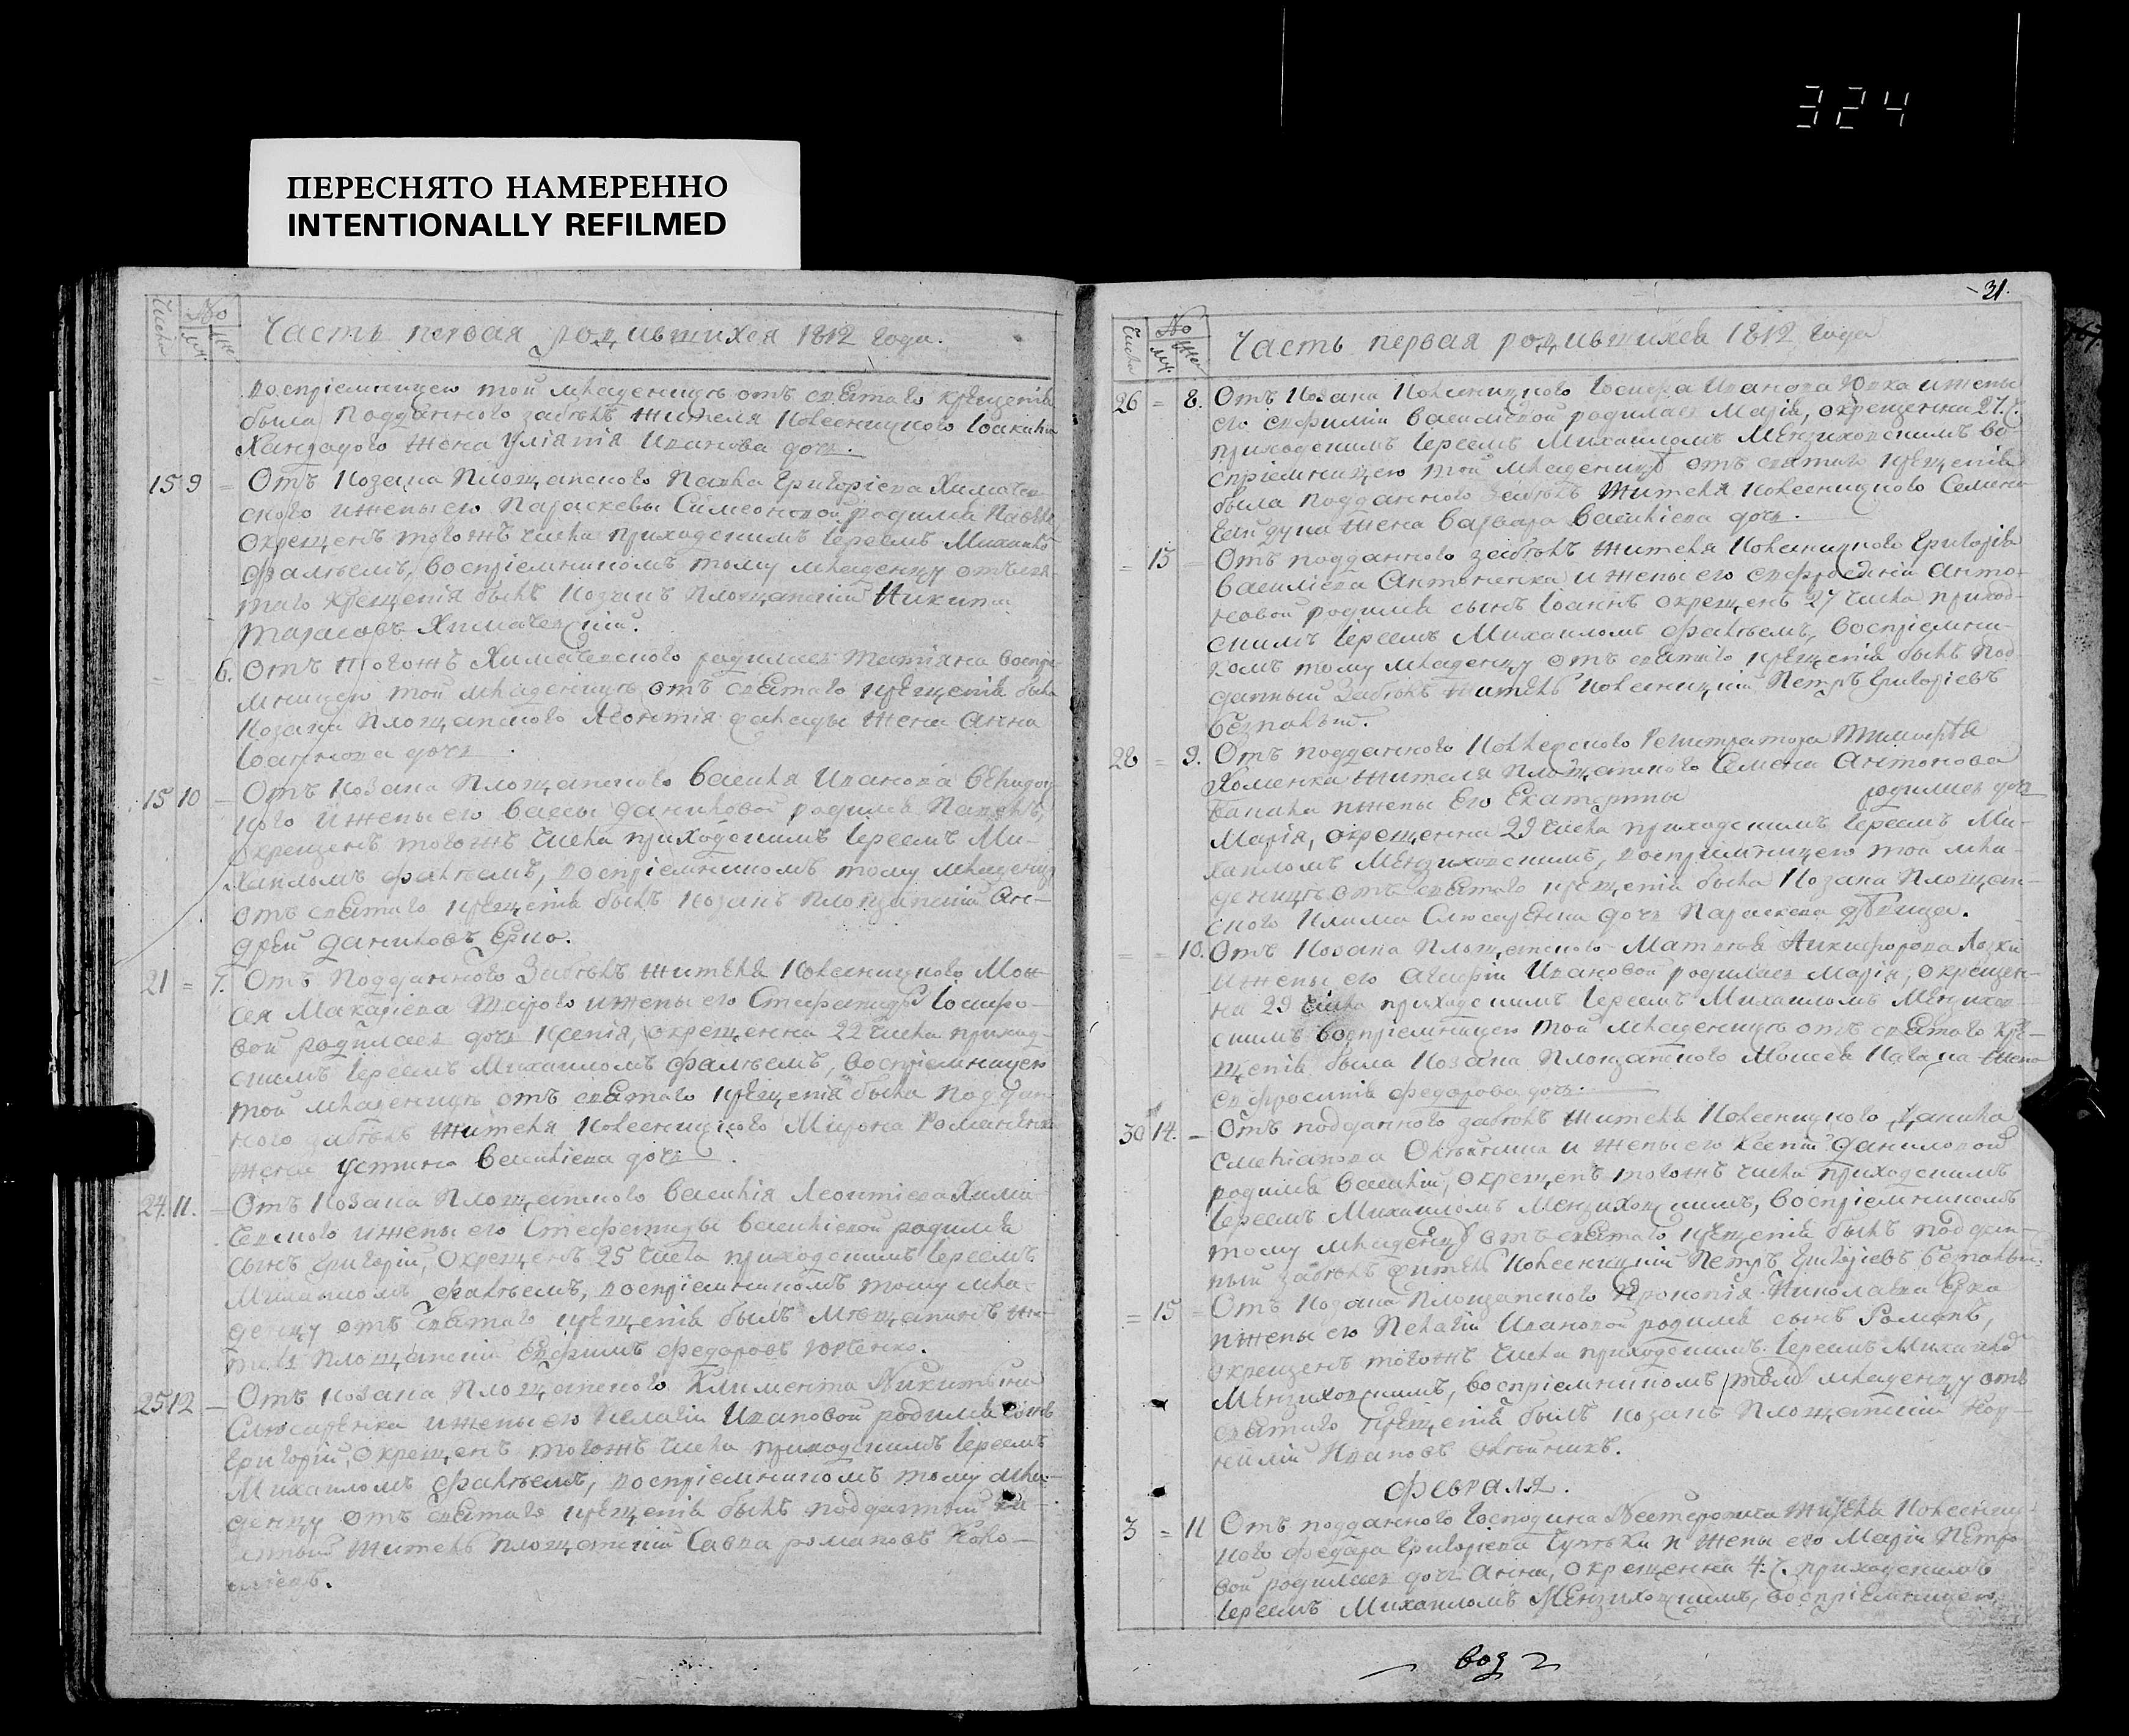 324
ПЕРЕСНЯТО НАМЕРЕННО
INTENTIONALLY REFILMED
Числа № м. же
Часть первая родившихся 1812 года.
воспріемницею той младеницѣ отъ святаго крещенія
была подданного забѣлъ жителя Колесницкого Іоакима
жена Уліянія Иванова дочь.
15 9 – Отъ Козака Площанского Павла Григоріева Химичев
ского и жены его Параскевы Симеоновой родился Павелъ,
окрещенъ тогожъ числа приходскимъ Іереемъ Михаило
Фалѣемъ, воспріемникомъ тому младенцу отъ свя
таго крещенія былъ Козакъ Площанскій Никита
Тарасовъ Химичевскій.
= = 6. Отъ тогожъ Химичевского родилась Татіяна воспрі
мницею той младеницѣ отъ святаго крещенія была
Козака Площанского Леонтія жена Анна
Іоаннова дочь.
15 10 – Отъ Козака Площанского Василія Иванова
цого и жены его Вассы Даниловой родился Павелъ,
окрещенъ тогожъ числа приходскимъ Іереемъ Ми-
хаиломъ Фалѣемъ, воспріемникомъ тому младенцу
отъ святаго крещенія былъ козакъ площанскій Ан-
дрей Даниловъ Ерко.
21 = 7. Отъ Подданного Забѣлъ жителя Колесницкого Мои-
сея Макаріева и жены его Стефаниды Іосифо-
вой родилась дочь Ксенія, окрещенна 22 числа приход
скимъ Іереемъ Михаиломъ Фалѣемъ, воспріемницею
той младеницѣ отъ святаго крещенія была поддан
ного забѣлъ жителя Колесницкого Мирона Романенка
жена Устина Василіева дочь.
24. 11. – Отъ Козака Площанского Василія Леонтіева Хими
чевского и жены его Стефаниды Василіевой родился
сынъ Григорій, окрещенъ 25 числа приходскимъ Іереемъ
Михаиломъ Фалѣемъ, воспріемникомъ тому мла-
денцу отъ святаго крещенія былъ Мѣщанинъ жи-
тель площанскій Евфимъ Федоровъ Юрченко.
25 12 – Отъ козака площанского Климента Никитина
Слюсаренка и жены его Пелагіи Ивановой родился сынъ
Григорій, окрещенъ тогожъ числа приходскимъ Іереемъ
Михаиломъ Фалѣемъ, воспріемникомъ тому мла-
денцу отъ святаго крещенія былъ подданный
житель площанскій Савва Романовъ

31.
Числа № м. же
Часть первая родившихся 1812 года
26 = 8. Отъ Козака Колесницкого Іосифа Иванова Юрка и жены
его Евфиміи Василіевой родилась Марія, окрещенна 27. ч.
приходскимъ Іереемъ Михаиломъ Мензиховскимъ во-
спріемницею той младеницѣ отъ святаго крещенія
была подданного Забѣлъ жителя Колесницкого Семена
жена Варвара Василіева дочь.
= 13 – Отъ подданного забѣлъ жителя Колесницкого Григорія
Василіева Антоненка и жены его Евфросиніи Анто-
новой родился сынъ Іоаннъ окрещенъ 27 числа приход-
скимъ Іереемъ Михаиломъ Фалѣемъ, воспріемни-
комъ тому младенцу отъ святаго крещенія былъ под
данный Забѣлъ житель Колесницкій Петръ Григоріевъ
28 = 9. Отъ подданного Коллежского Регистратора Тимофѣя
Хоменка жителя Площанского Семена Антонова
и жены Его Екатерины родилась дочь
Марія, окрещенна 29 числа приходскимъ Іереемъ Ми-
хаиломъ Мензиховскимъ, воспріемницею той мла-
деницѣ отъ святаго крещенія была Козака Площан-
ского Клима Слюсаренка дочь Параскева дѣвица.
= = 10. Отъ Козака Площанского Матвея Никифорова Лозки
и жены его Агафіи Ивановой родилась Марія, окрещен-
на 29 числа приходскимъ Іереемъ Михаиломъ Мензихов-
скимъ воспріемницею той младеницѣ отъ святаго кре-
щенія была Козака Площанского Моисея жена
Евфросинія Федорова дочь.
30 14. – Отъ подданного забѣлъ жителя Колесницкого Данила
Олѣйника и жены его Ксеніи Даниловой
родился Василій, окрещенъ тогожъ числа приходскимъ
Іереемъ Михаиломъ Мензиховскимъ, воспріемникомъ
тому младенцу отъ святаго крещенія былъ поддан-
ный забѣлъ житель Колесницкій Петръ Григоріевъ
= 15 = Отъ Козака Площанского Прокопія Николаева Ерка
и жены его Пелагіи Ивановой родился сынъ Романъ,
окрещенъ тогожъ числа приходскимъ Іереемъ Михаило
Мензиховскимъ, воспріемникомъ тому младенцу отъ
святаго крещенія былъ козакъ площанскій Кор-
нилій Ивановъ Олѣйникъ.
Февраля.
3 = 11 Отъ подданного Господина Нестеровича жителя Колесниц-
кого Федора Григоріева и жены его Маріи Петро
вой родилась дочь Анна, окрещенна 4. ч. приходскимъ
Іереемъ Михаиломъ Мензиховскимъ, воспріемницею